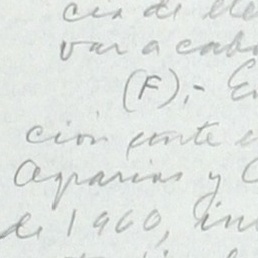 cia de lle
var a cabo
(F).- E
ción
Agrarias y
de 1960, in